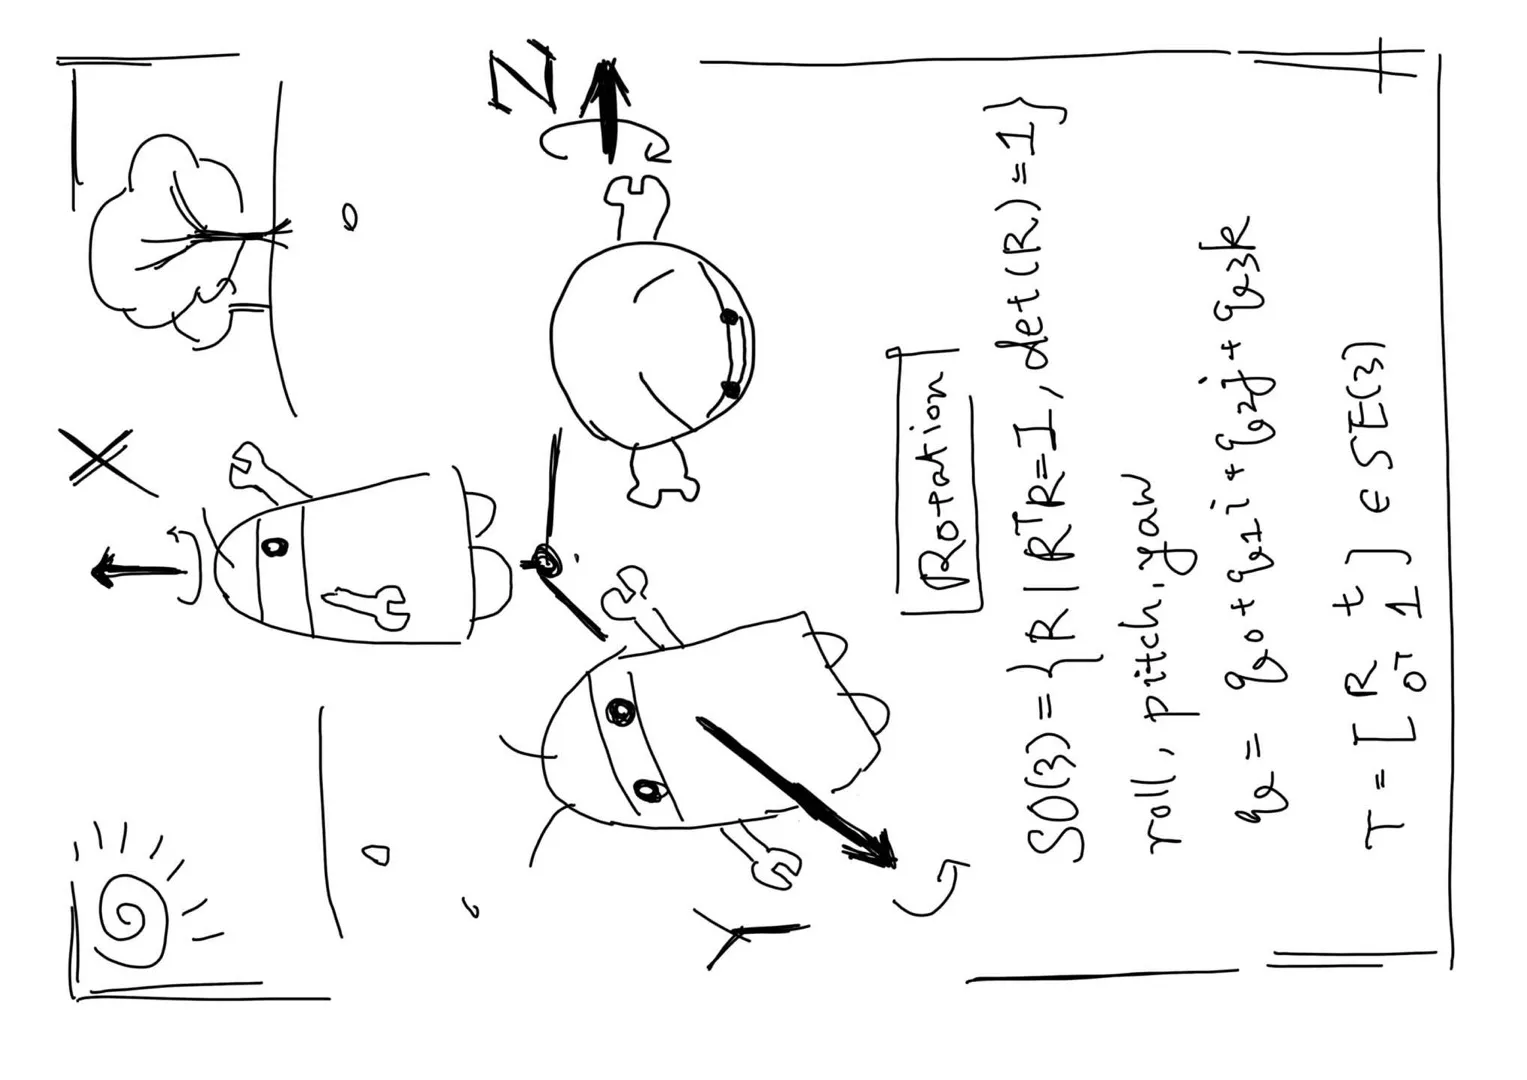 X
Z
Y
Rotation
SO(3)={R|RᵀR=I, det(R)=1}
roll, pitch, yaw
q = q₀+q₁i+q₂j+q₃k
T=[R t
0ᵀ 1] ∈ SE(3)